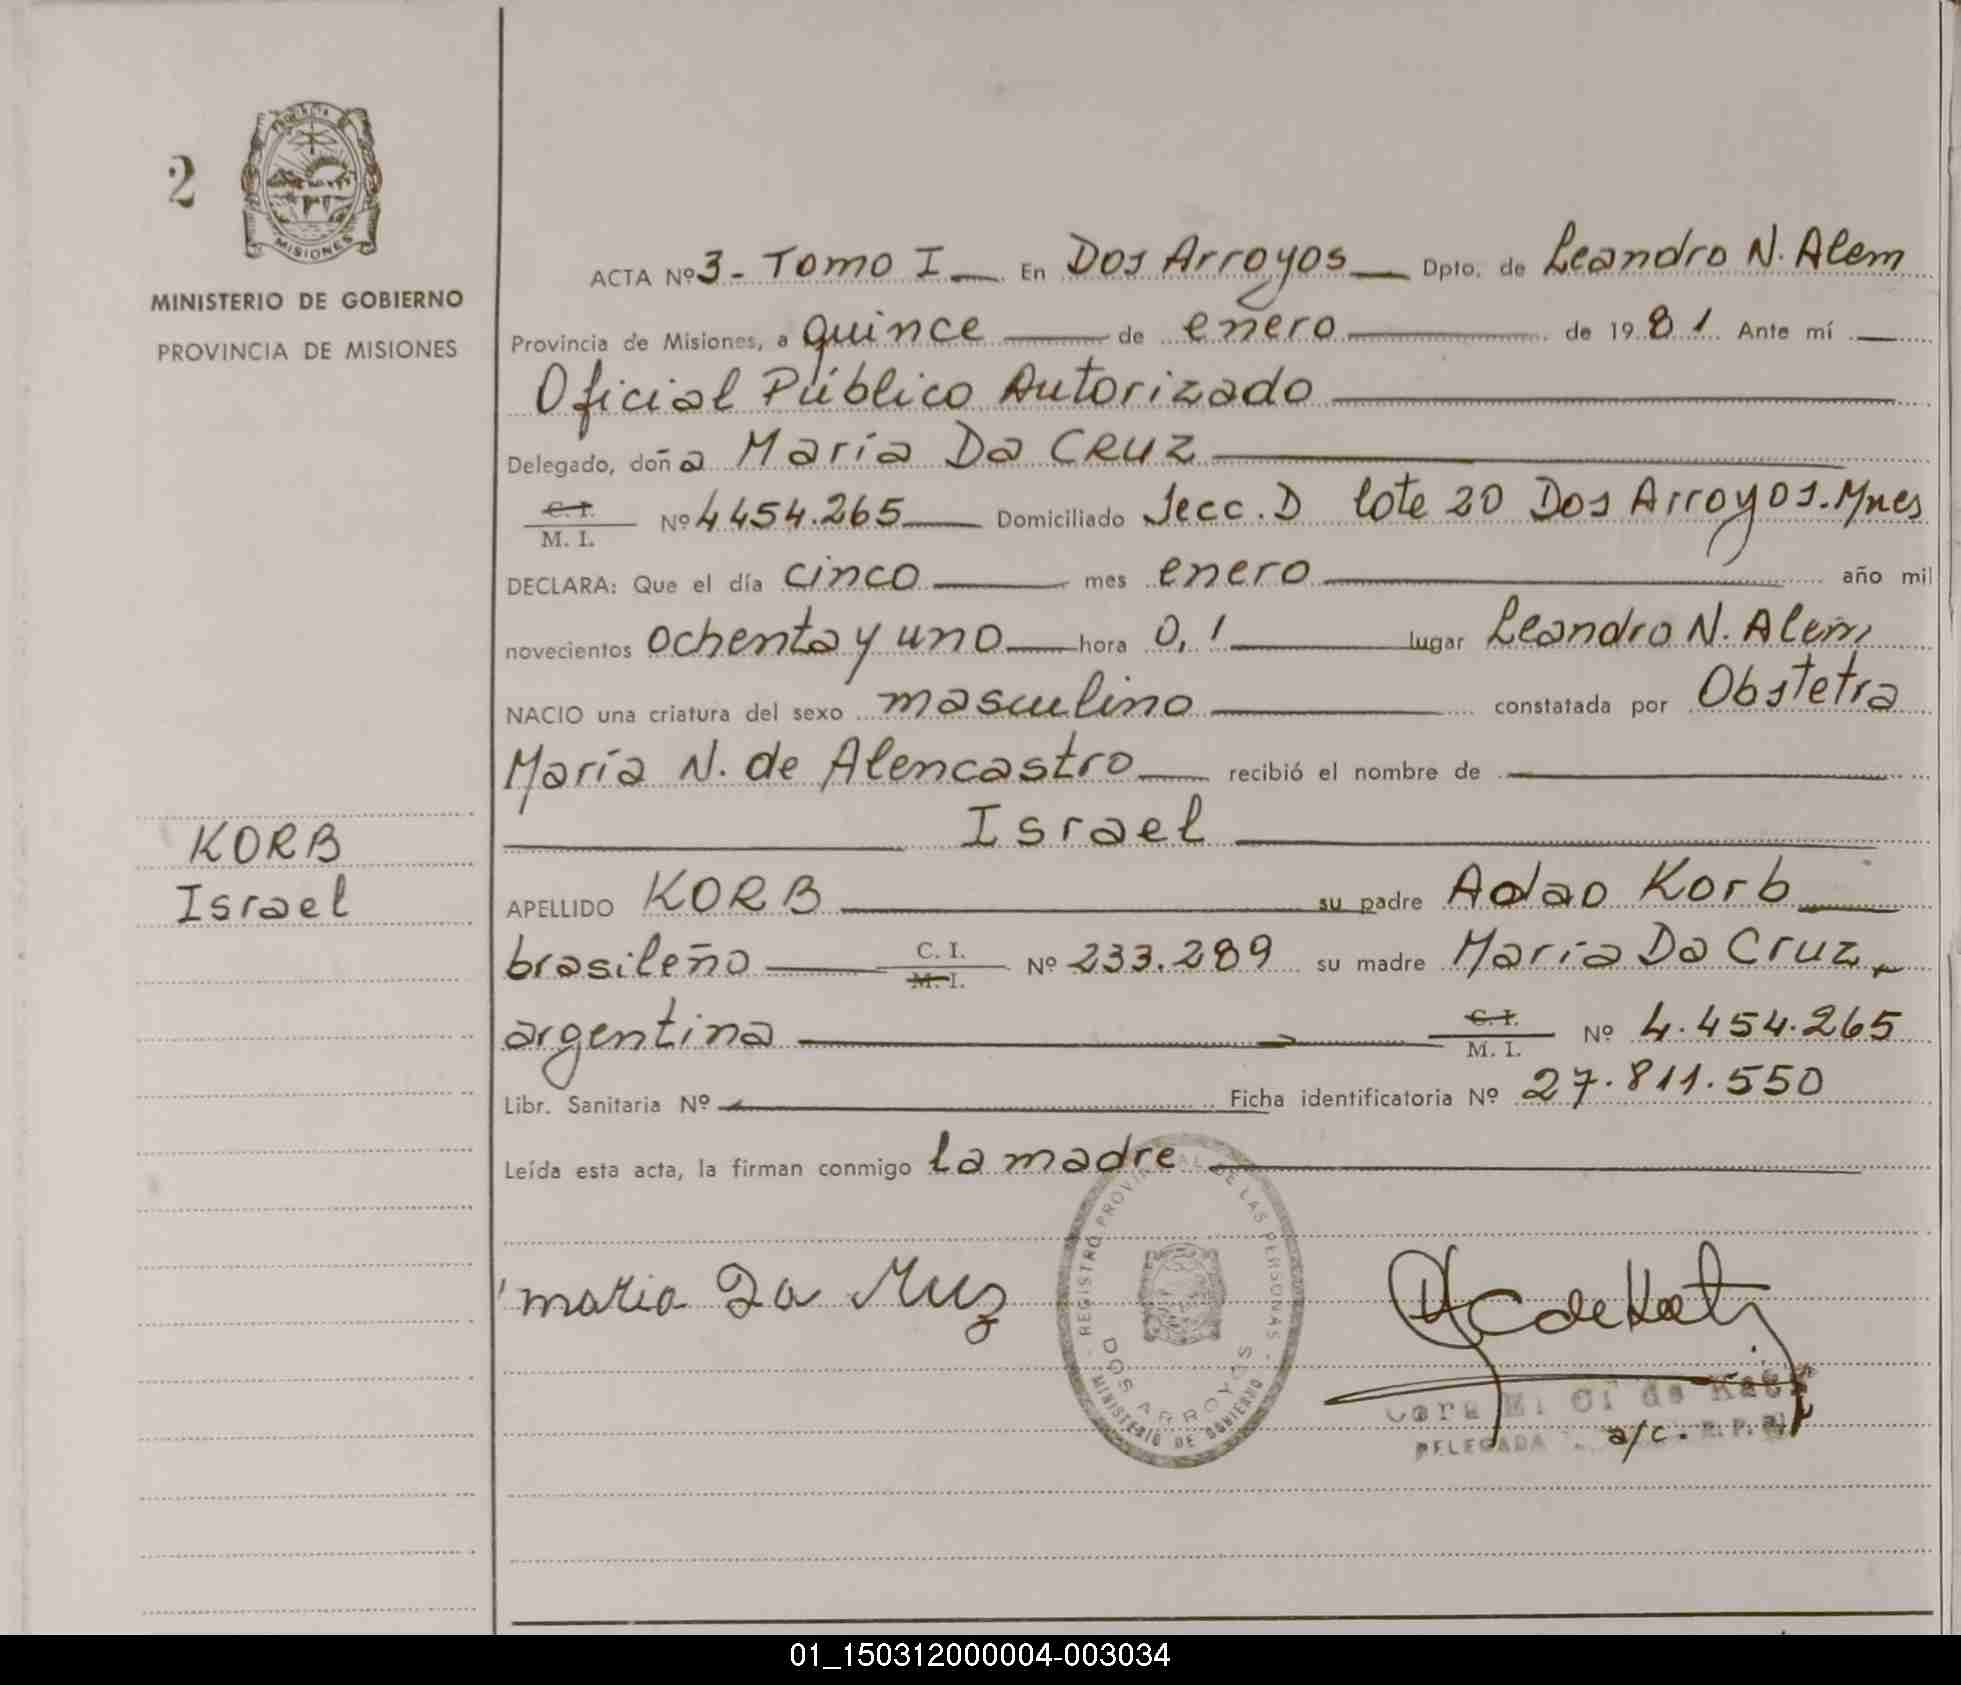 2
MISIONES
MINISTERIO DE GOBIERNO
PROVINCIA DE MISIONES
KORB
Israel
ACTA Nº 3 - Tomo I En Dos Arroyos Dpto. de Leandro N. Alem
Provincia de Misiones, a quince de enero de 1981 Ante mí
Oficial Público Autorizado
Delegado, doña María Da Cruz
C. I.
M. I. Nº 4454.265 Domiciliado Secc. D lote 20 Dos Arroyos. Mnes
DECLARA: Que el día cinco mes enero año mil
novecientos ochenta y uno hora 0,1 lugar Leandro N. Alem
NACIO una criatura del sexo masculino constatada por Obstetra
María N. de Alencastro recibió el nombre de
Israel
APELLIDO KORB su padre Adao Korb
brasileño C. I. M. I. Nº 233.289 su madre María Da Cruz
argentina C. I. M. I. Nº 4.454.265
Libr. Sanitaria Nº Ficha identificatoria Nº 27.811.550
Leída esta acta, la firman conmigo la madre
REGISTRO PROVINCIAL DE LAS PERSONAS
DOS ARROYOS
MINISTERIO DE GOBIERNO
maria Da
de
DELEGADA a/c. R. P.
01_150312000004-003034